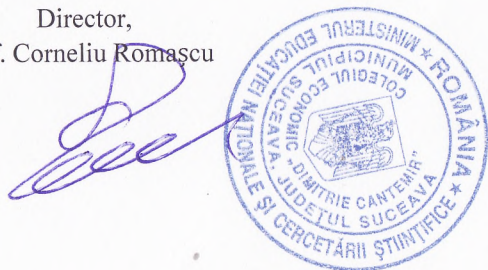 Director,
. Corneliu Romașcu
★ ROMÂNIA ★ MINISTERUL EDUCAȚIEI NAȚIONALE ȘI CERCETĂRII ȘTIINȚIFICE
COLEGIUL ECONOMIC „DIMITRIE CANTEMIR”
MUNICIPIUL SUCEAVA, JUDEȚUL SUCEAVA